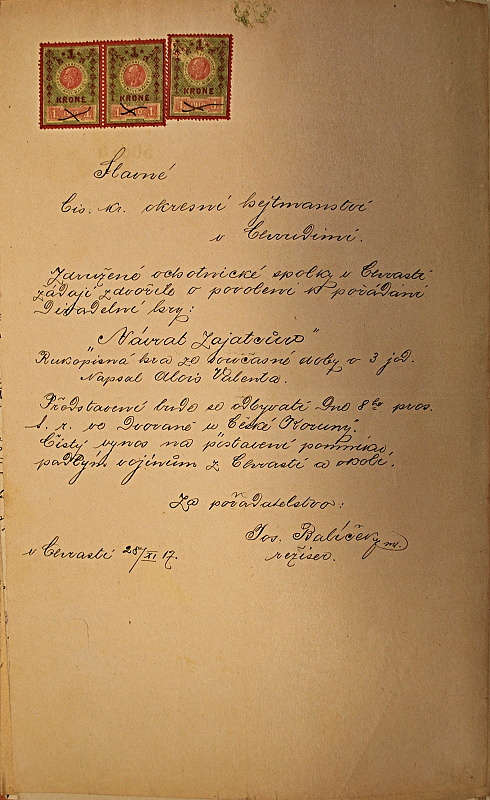 1 1 1
KRONE KRONE KRONE
1 1 1 1
Slavné
Cís. kr. okresní hejtmanství
v Chrudimi.
Združené ochotnické spolky v Chrasti
žádají zdvořile o povolení k pořádání
Divadelní hry:
„Návrat zajatcův"
Rukopisná hra ze současné doby o 3 jed.
Napsal Alois Valenta.
Představení bude se odbývati Dne 8ho pros.
t. r. ve Dvoraně u České Koruny.
Čistý výnos na postavení pomníku
padlým vojínům z Chrasti a okolí.
Za pořadatelstvo:
Jos. Balíček
v Chrasti 28/XI 17.
režiser.